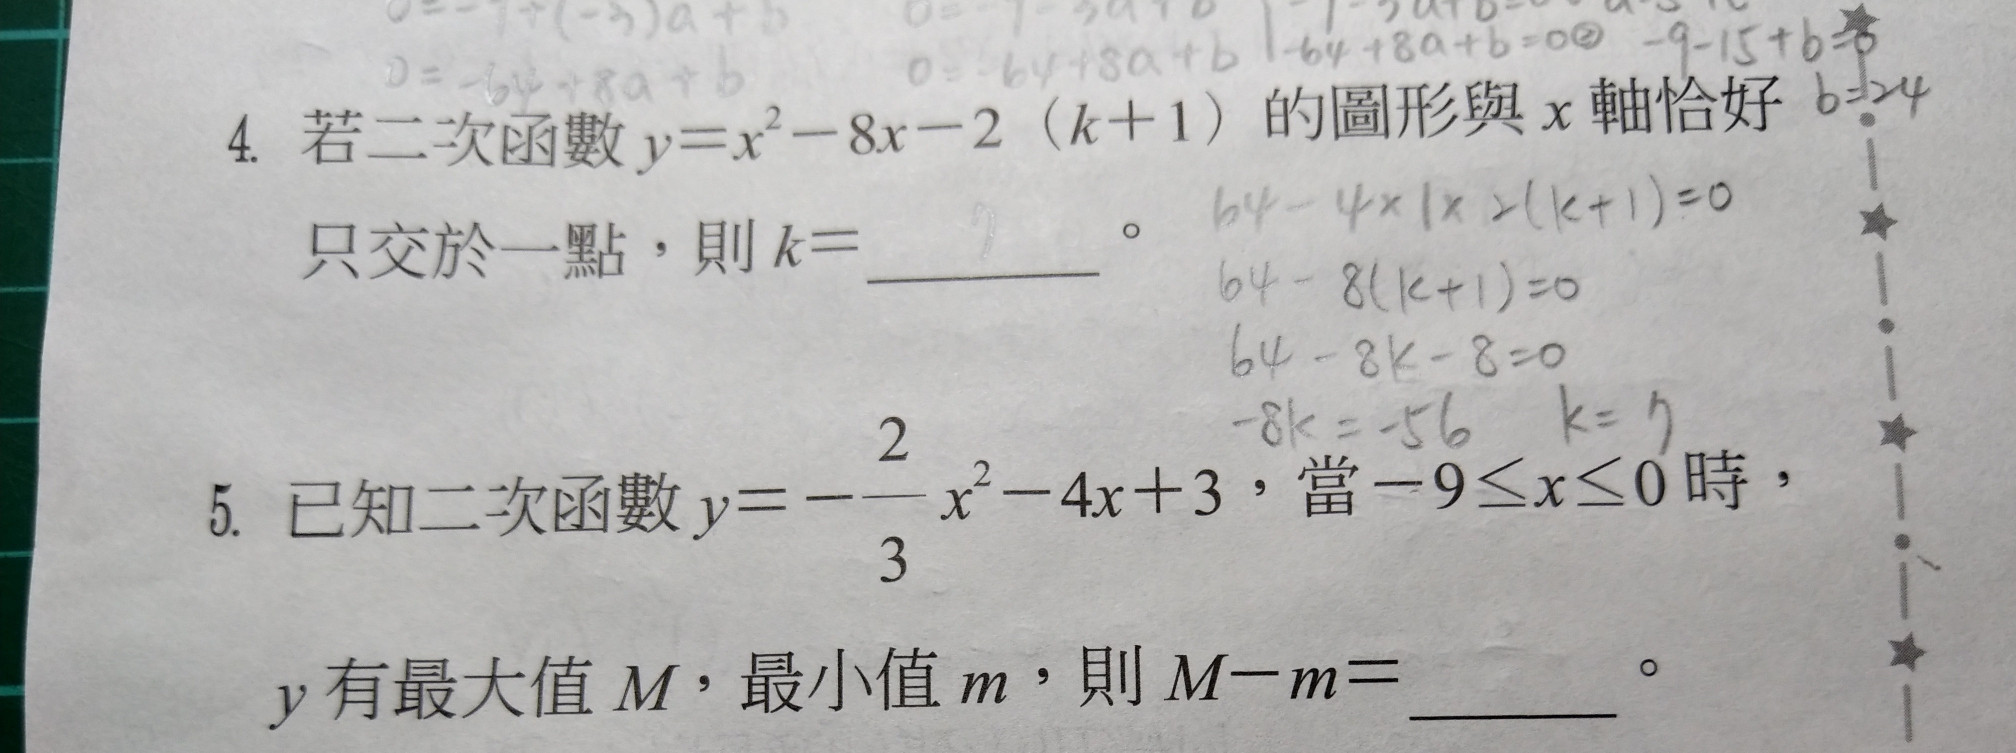 0=-64+8a+b 0=-64+8a+b -64+8a+b=0② -9-15+b=0
b=24
4. 若二次函數 y=x²-8x-2（k+1）的圖形與 x 軸恰好
只交於一點，則 k= 7 。
64-4×1×2(k+1)=0
64-8(k+1)=0
64-8k-8=0
-8k=-56 k=7
5. 已知二次函數 y=-\frac{2}{3}x²-4x+3，當-9≤x≤0 時，
y 有最大值 M，最小值 m，則 M-m= 。